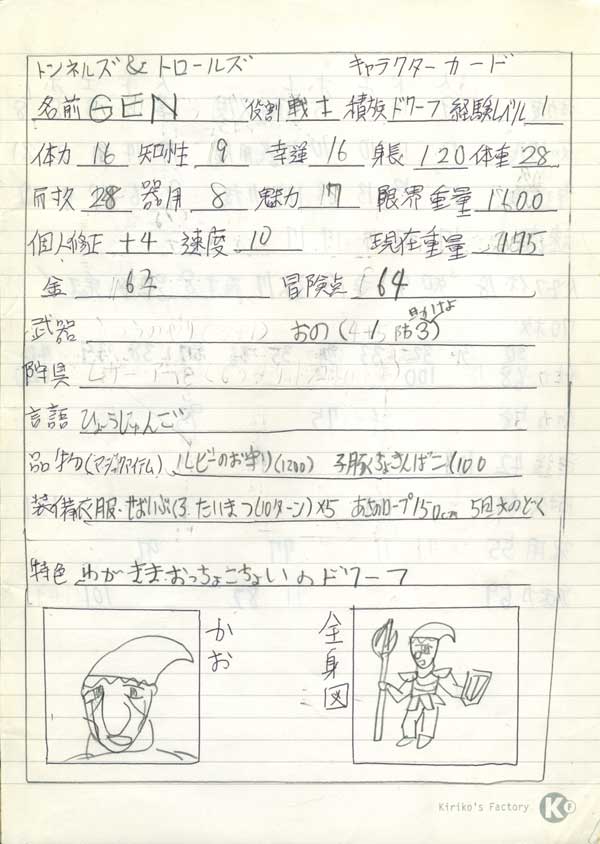 トンネルズ&トロールズ キャラクターカード
名前 GEN 役割 戦士 種族 ドワーフ 経験レベル 1
体力 16 知性 9 幸運 16 身長 120 体重 28
耐久 28 器用 8 魅力 17 限界重量 1600
個人修正 +4 速度 10 現在重量
金 64 冒険点 64
武器 おの(4+1 防3)
防具
言語 ひょうじゅんご
品物(マジックアイテム) ルビーのお守り(1200) 子豚ちょきんばこ(100
装備 衣服・せおいぶくろ たいまつ(10ターン)×5 あさのロープ150cm 5回
特色 わがまま・おっちょこちょいのドワーフ
かお
全身図
Kiriko's Factory K